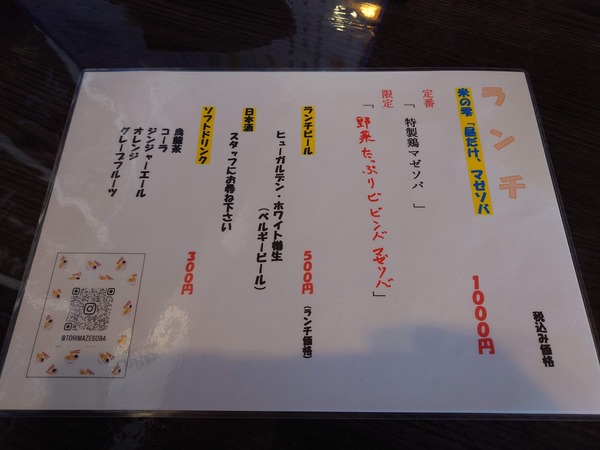 ランチ
税込み価格
米の雫「昼だけ、マゼソバ
1000円
定番
「 特製鶏マゼソバ 」
限定
「野菜たっぷりビビンバマゼソバ」
ランチビール
500円
(ランチ価格)
ヒューガルデン・ホワイト樽生
(ベルギービール)
日本酒
スタッフにお尋ね下さい
ソフトドリンク
300円
烏龍茶
コーラ
ジンジャーエール
オレンジ
グレープフルーツ
@TORIMAZESOBA